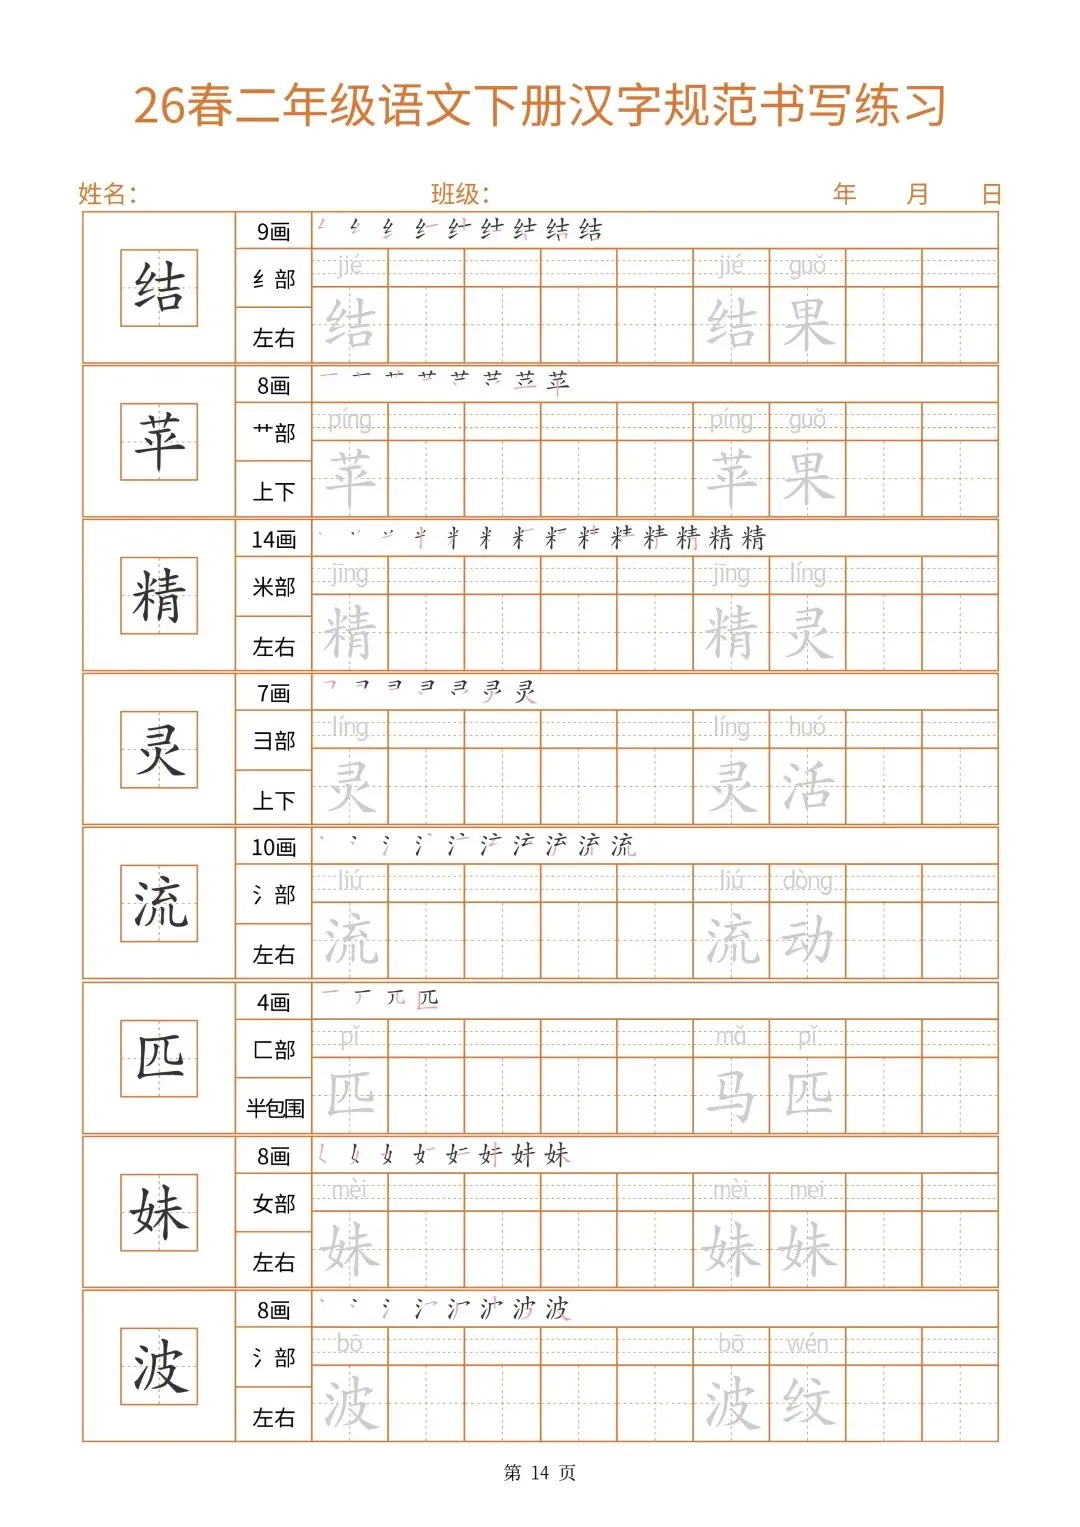 26春二年级语文下册汉字规范书写练习
姓名： 班级： 年 月 日
结 9画
纟部 jié jié guǒ
左右 结 结 果
苹 8画
艹部 píng píng guǒ
上下 苹 苹 果
精 14画
米部 jīng jīng líng
左右 精 精 灵
灵 7画
彐部 líng líng huó
上下 灵 灵 活
流 10画
氵部 liú liú dòng
左右 流 流 动
匹 4画
匚部 pǐ mǎ pǐ
半包围 匹 马 匹
妹 8画
女部 mèi mèi mei
左右 妹 妹 妹
波 8画
氵部 bō bō wén
左右 波 波 纹
第 14 页